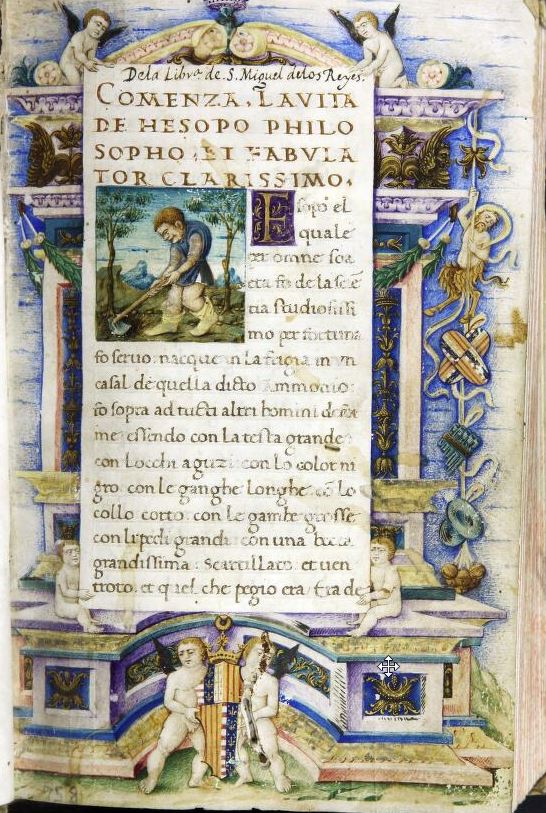 Dela Libra. de S. Miguel delos Reyes.
COMENZA, LAVITA
DE HESOPO PHILO
SOPHO, ET FABVLA
TOR CLARISSIMO,
Esopo el
quale
per omne soa
eta fo de la
tia studiosissi
mo per fortuna
fo seruo: nacque in la frigia in vn
casal de quella dicto Ammonio:
fo sopra ad tucti altri homini
me: essendo con la testa grande
con Locchi aguzi: con lo color ni
gro: con le ganghe longhe: cõ lo
collo cotto: con le gambe grosse
con li pedi grandi: con una bocca
grandissima: Scartillato: et uen
troto: et quel che pegio era: Era de